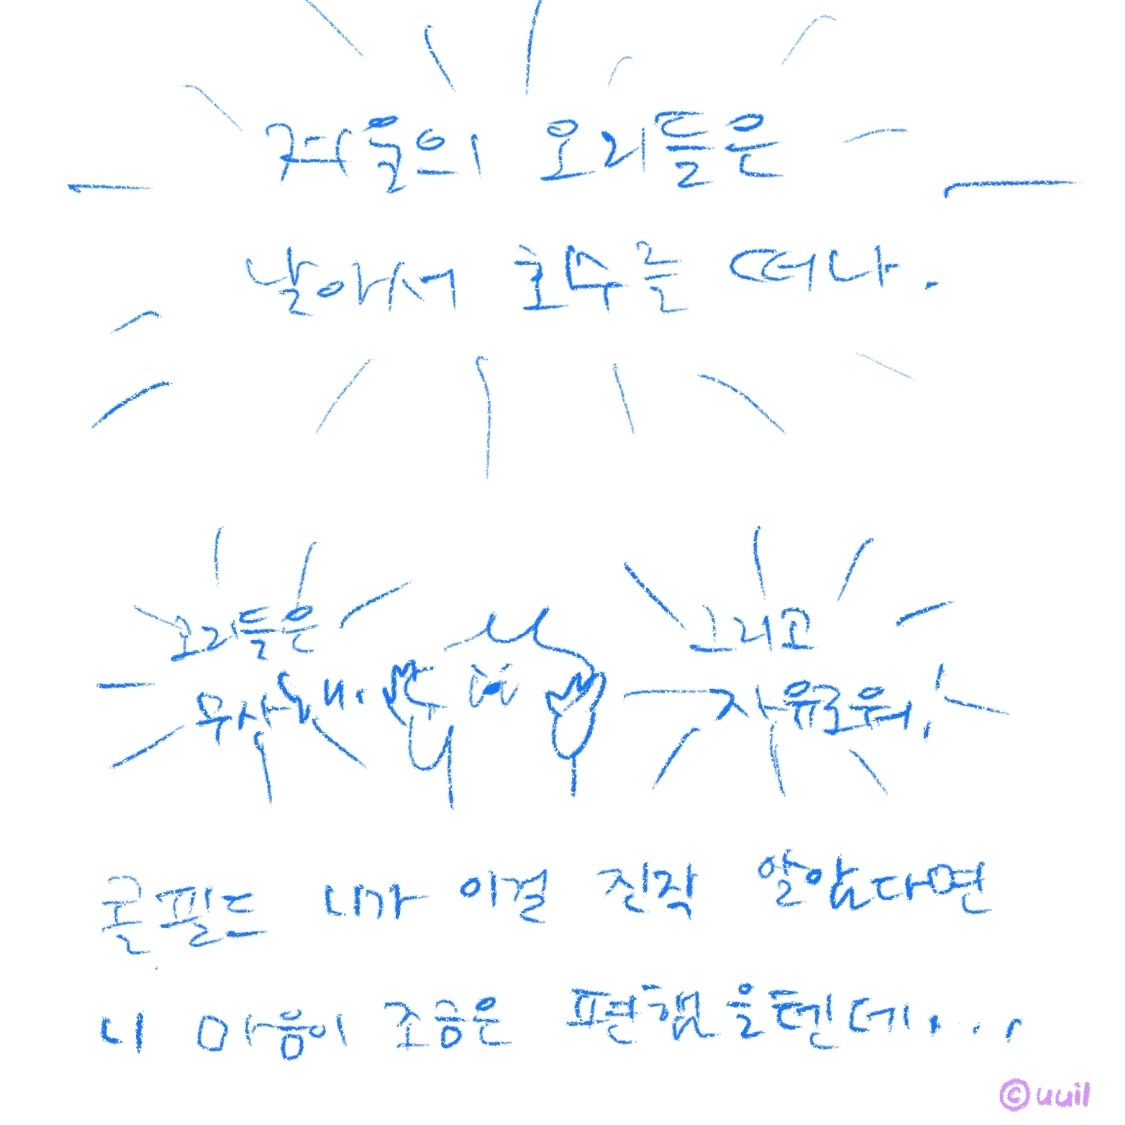 겨울의 오리들은
날아서 호수를 떠나.
오리들은
무사해.
그리고
자유로워!
콜필드 니가 이걸 진작 알았다면
니 마음이 조금은 편했을텐데...
© uuil